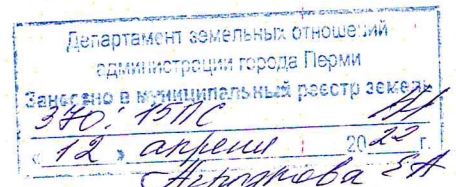 Департамент земельных отношений
администрации города Перми
Занесено в муниципальный реестр земель
370: 15ПС
« 12 » апреля 2022 г.